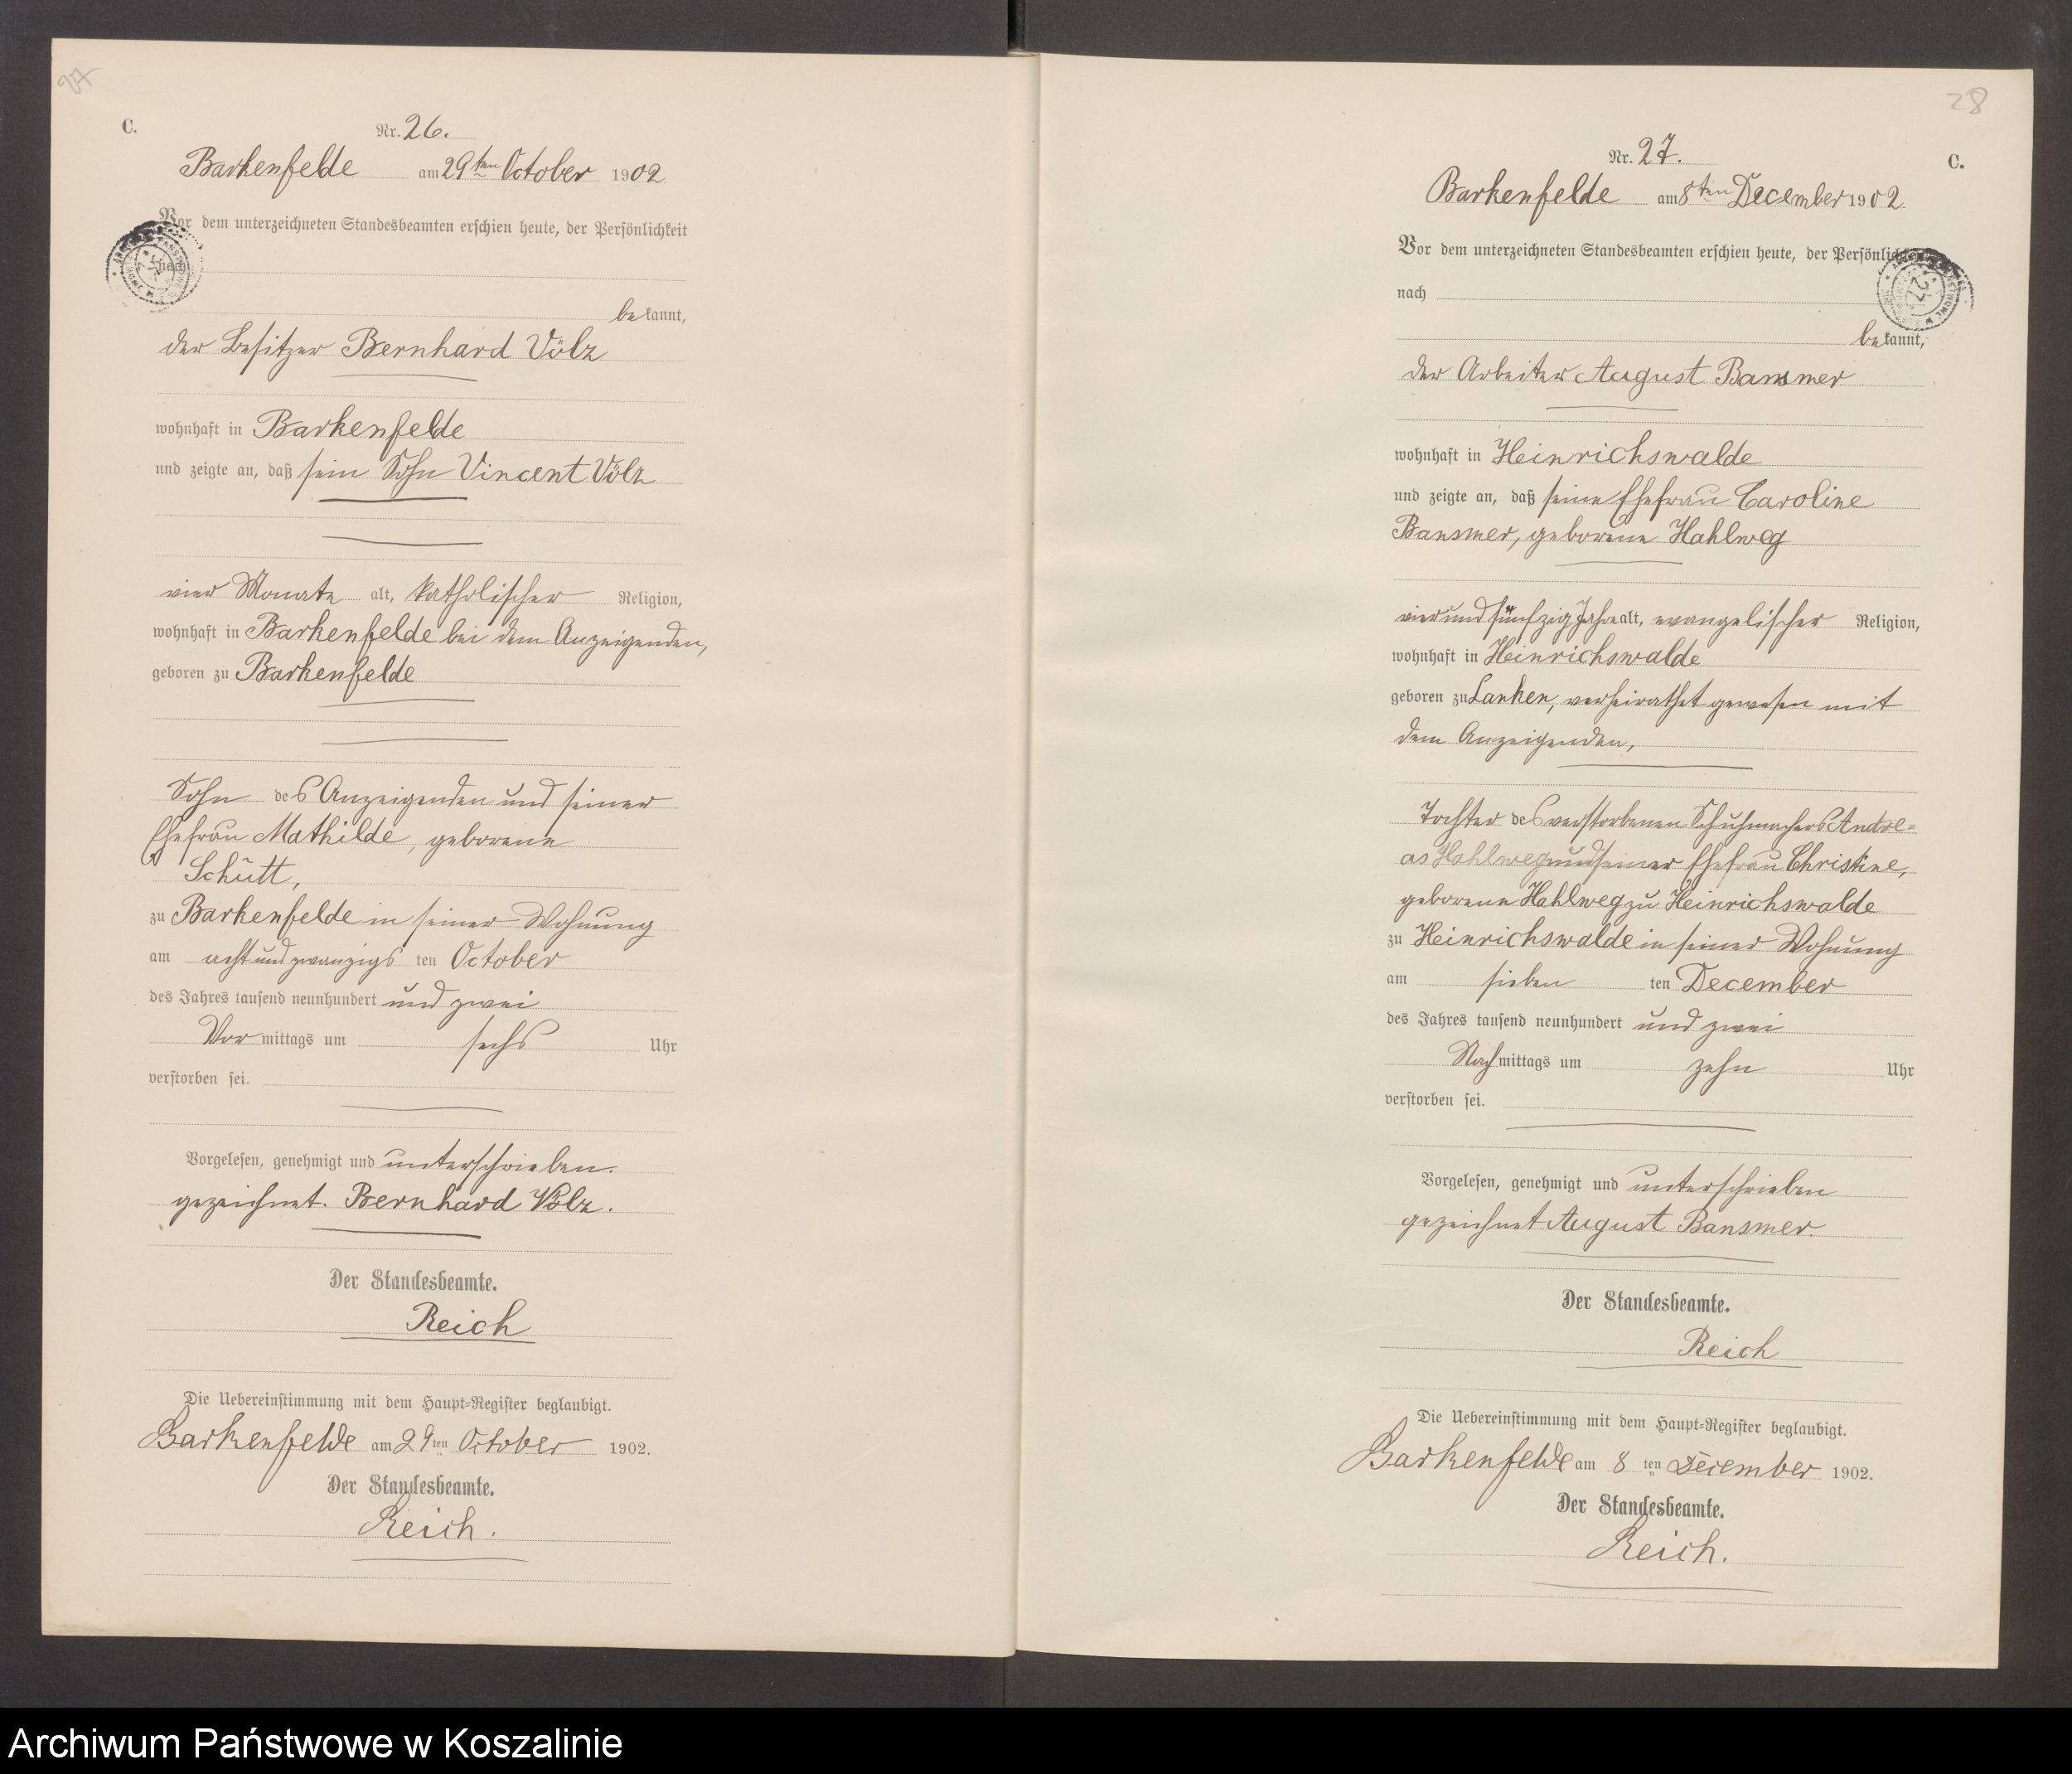 27
C.
Nr. 26.
Barkenfelde am 29ten October 1902.
Vor dem unterzeichneten Standesbeamten erschien heute, der Persönlichkeit
nach
bekannt,
der Besitzer Bernhard Völz
wohnhaft in Barkenfelde
und zeigte an, daß sein Sohn Vincent Völz
vier Monate alt, katholischer Religion,
wohnhaft in Barkenfelde bei dem Anzeigenden,
geboren zu Barkenfelde
Sohn des Anzeigenden und seiner
Ehefrau Mathilde, geborene
Schütt,
zu Barkenfelde in seiner Wohnung
am achtundzwanzigsten October
des Jahres tausend neunhundert und zwei
Vormittags um sechs Uhr
verstorben sei.
Vorgelesen, genehmigt und unterschrieben.
gezeichnet. Bernhard Völz.
Der Standesbeamte.
Reich
Die Uebereinstimmung mit dem Haupt=Register beglaubigt.
Barkenfelde am 29ten October 1902.
Der Standesbeamte.
Reich.
28
Nr. 27.
C.
Barkenfelde am 8ten December 1902.
Vor dem unterzeichneten Standesbeamten erschien heute, der Persönlichkeit
nach
bekannt,
der Arbeiter August Bansmer
wohnhaft in Heinrichswalde
und zeigte an, daß seine Ehefrau Caroline
Bansmer, geborene Hahlweg
vierundfünfzig Jahre alt, evangelischer Religion,
wohnhaft in Heinrichswalde
geboren zu Lanken, verheirathet gewesen mit
dem Anzeigenden,
Tochter des verstorbenen Schuhmachers Andre=
as Hahlweg und seiner Ehefrau Christine,
geborene Hahlweg zu Heinrichswalde
zu Heinrichswalde in seiner Wohnung
am siebenten December
des Jahres tausend neunhundert und zwei
Nachmittags um zehn Uhr
verstorben sei.
Vorgelesen, genehmigt und unterschrieben
gezeichnet August Bansmer.
Der Standesbeamte.
Reich
Die Uebereinstimmung mit dem Haupt=Register beglaubigt.
Barkenfelde am 8ten December 1902.
Der Standesbeamte.
Reich.
Archiwum Państwowe w Koszalinie